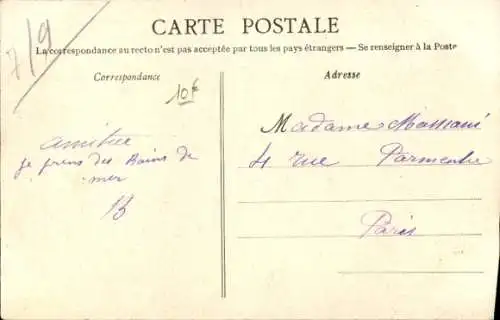 7/9
CARTE POSTALE
La correspondance au recto n'est pas acceptée par tous les pays étrangers — Se renseigner à la Poste
Correspondance
Adresse
10f
Madame Massani
amitiée
4 rue Parmentier
je prens des Bains de
mer
B
Paris